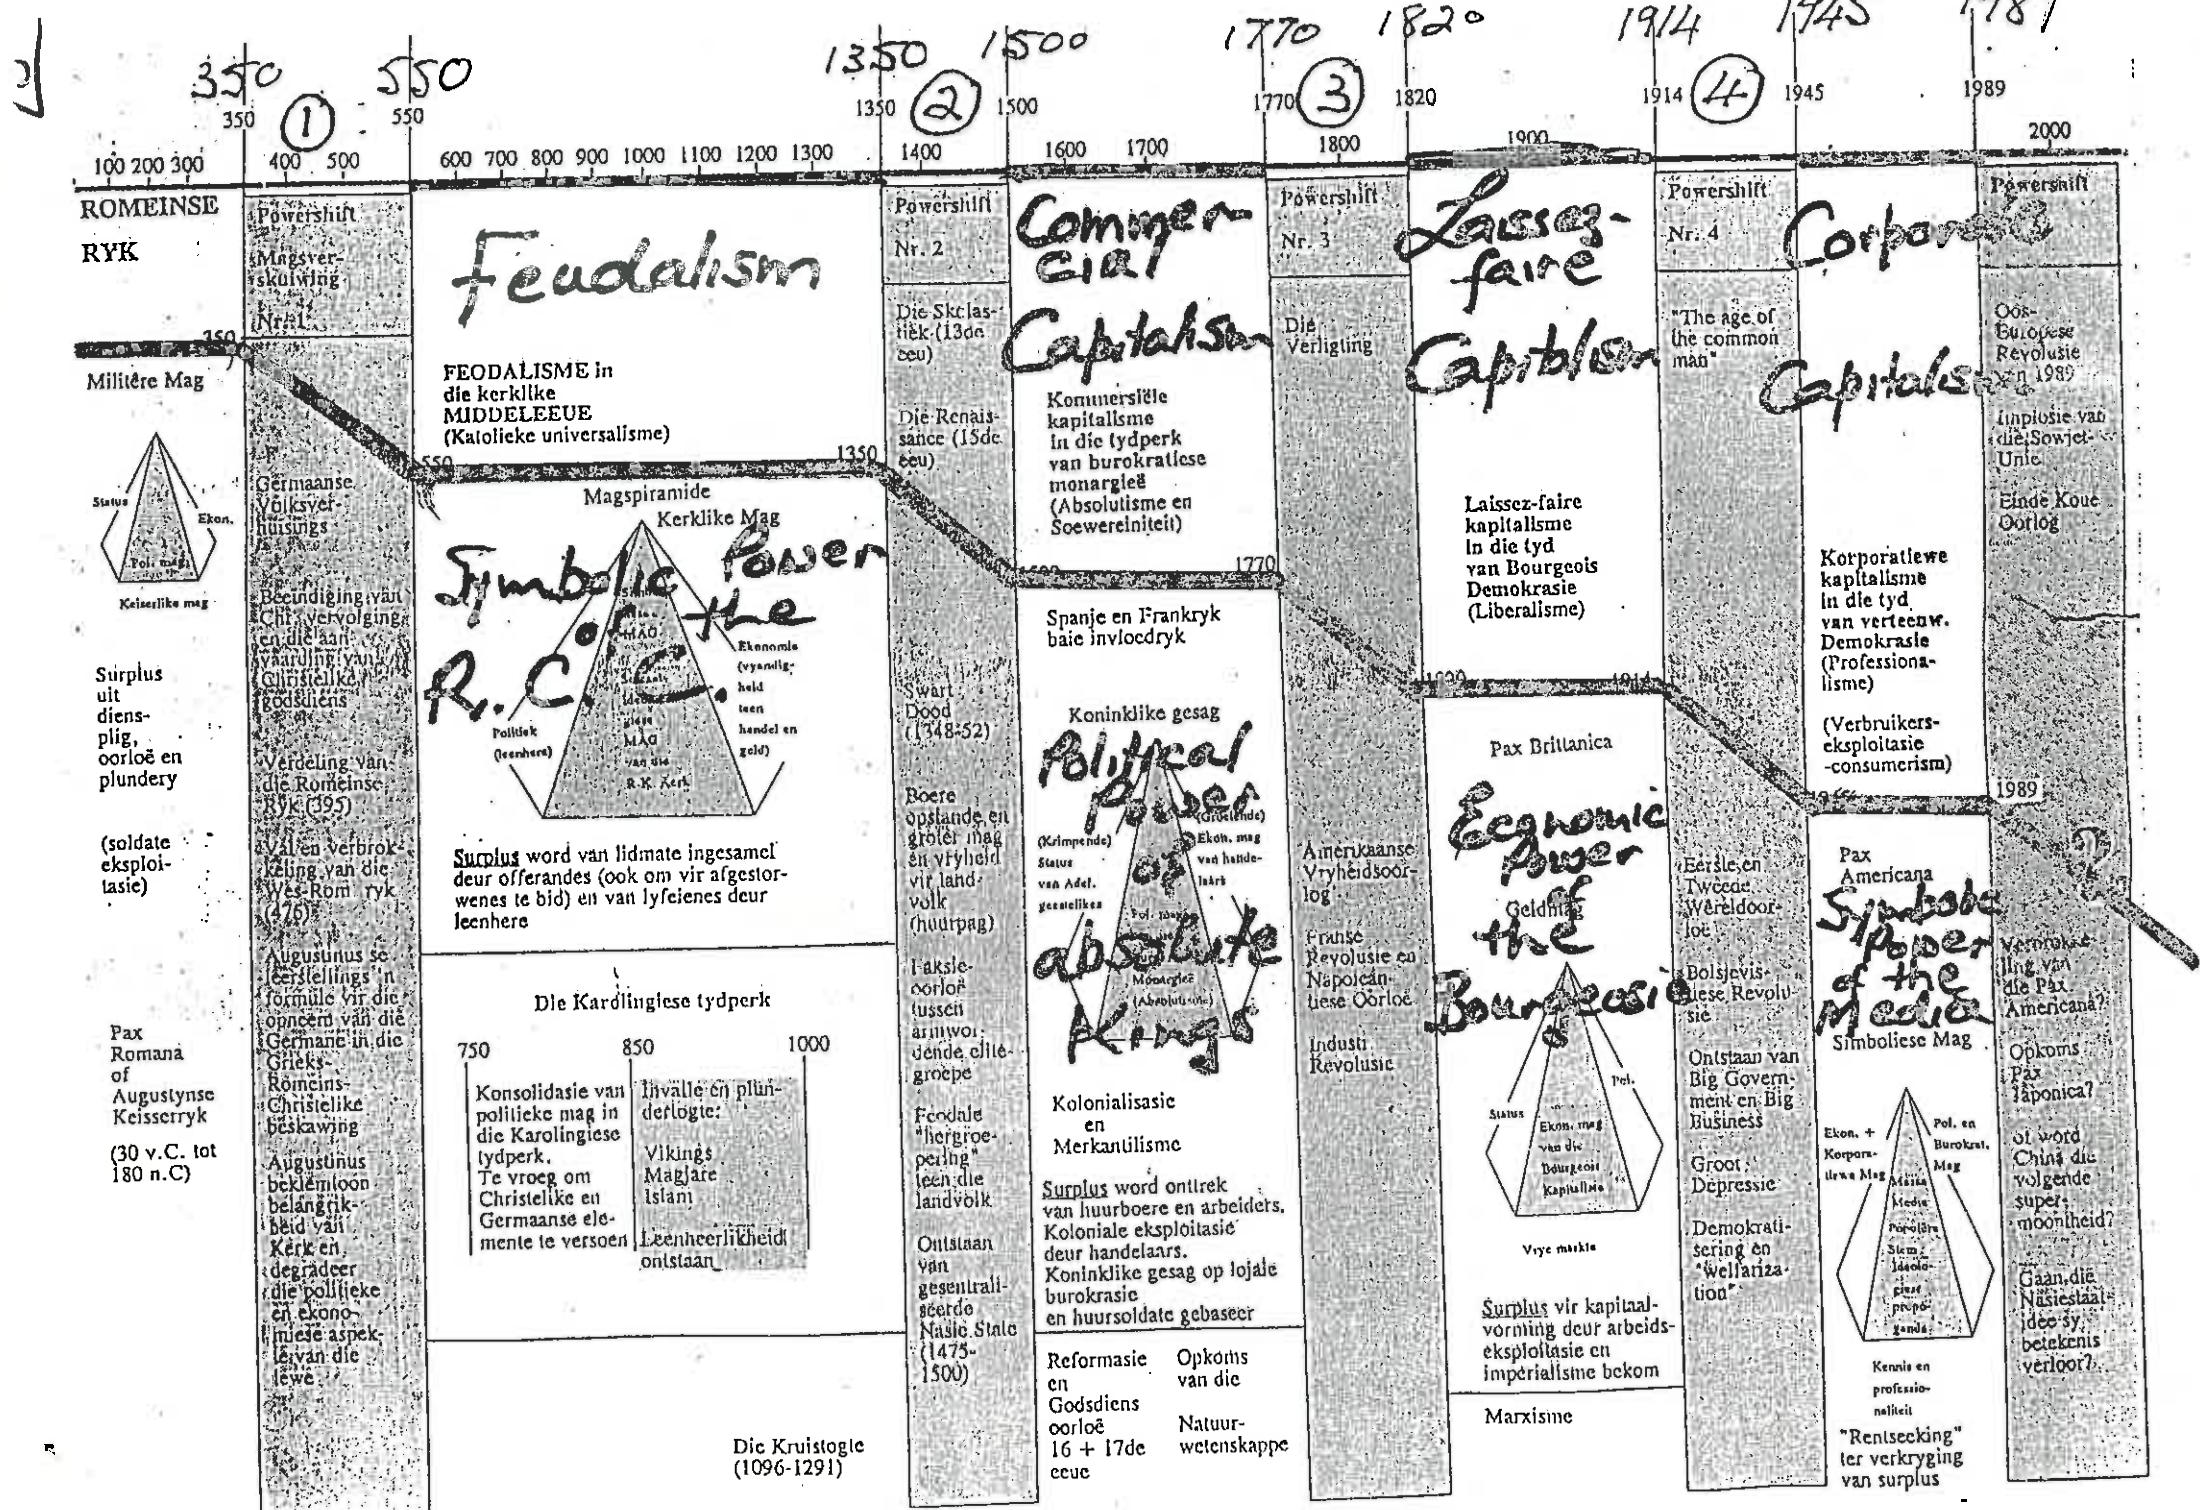 350
550
1350
1500
1770
1820
1914
1945
①
②
③
④
350
550
1350
1500
1770
1820
1914
1945
1989
100 200 300
400 500
600 700 800 900 1000 1100 1200 1300
1400
1600 1700
1800
1900
2000
ROMEINSE
RYK
Militêre Mag
Status
Ekon.
Pol. mag
Keiserlike mag
Surplus
uit
diens-
plig,
oorloë en
plundery
(soldate
eksploi-
tasie)
Pax
Romana
of
Augustynse
Keisserryk
(30 v.C. tot
180 n.C)
Powershift
Magsver-
skuiwing
Nr. 1
Germaanse
Volksver-
huisings
Beëindiging van
Chr. vervolging
en die aan-
vaarding van
Christelike
godsdiens
Verdeling van
die Romeinse
Ryk (395)
Val en verbrok-
keling van die
Wes-Rom. ryk
(476)
Augustinus se
leerstellings in
formule vir die
opneem van die
Germane in die
Grieks-
Romeins-
Christelike
beskawing
Augustinus
beklemtoon
belangrik-
heid van
Kerk en
degradeer
die politieke
en ekono-
miese aspek-
te van die
lewe
Feudalism
FEODALISME in
die kerklike
MIDDELEEUE
(Katolieke universalisme)
550
1350
Magspiramide
Kerklike Mag
Symbolic Power
of the
R. C. C.
Politiek
(leenhere)
Ekonomie
(vyandig-
heid
teen
handel en
geld)
MAG
MAG
van die
R.K. Kerk
Surplus word van lidmate ingesamel
deur offerandes (ook om vir afgestor-
wenes te bid) en van lyfeienes deur
leenhere
Die Karolingiese tydperk
750 850 1000
Konsolidasie van
politieke mag in
die Karolingiese
tydperk.
Te vroeg om
Christelike en
Germaanse ele-
mente te versoen
Invalle en plun-
dertogte:
Vikings
Magjare
Islam
Leenheerlikheid
ontstaan
Die Kruistogte
(1096-1291)
Powershift
Nr. 2
Die Skolas-
tiek (13de
eeu)
Die Renais-
sance (15de
eeu)
Swart
Dood
(1348-52)
Boere
opstande en
groter mag
en vryheid
vir land-
volk
(huurpag)
Faksie-
oorloë
tussen
armwor-
dende elite-
groepe
Feodale
"hergroe-
pering"
teen die
landvolk
Ontstaan
van
gesentrali-
seerde
Nasie State
(1475-
1500)
Commer-
cial
Capitalism
Kommersiële
kapitalisme
in die tydperk
van burokratiese
monargieë
(Absolutisme en
Soewereiniteit)
1770
Spanje en Frankryk
baie invloedryk
Koninklike gesag
Political
Power
of
absolute
Kings
(Krimpende)
Status
van Adel.
geestelikes
(Groeiende)
Ekon. mag
van hande-
laars
Pol. mag
Monargieë
(Absolutisme)
Kolonialisasie
en
Merkantilisme
Surplus word onttrek
van huurboere en arbeiders.
Koloniale eksploitasie
deur handelaars.
Koninklike gesag op lojale
burokrasie
en huursoldate gebaseer
Reformasie
en
Godsdiens
oorloë
16 + 17de
eeue
Opkoms
van die
Natuur-
wetenskappe
Powershift
Nr. 3
Die
Verligting
Amerikaanse
Vryheidsoor-
log
Franse
Revolusie en
Napolean-
tiese Oorloë
Industi
Revolusie
Laissez-
faire
Capitalism
Laissez-faire
kapitalisme
in die tyd
van Bourgeois
Demokrasie
(Liberalisme)
Pax Brittanica
Economic
Power
of
the
Bourgeosie
Geldmag
Status
Pol.
Ekon. mag
van die
Bourgeois
Kapitaliste
Vrye markte
Surplus vir kapitaal-
vorming deur arbeids-
eksploitasie en
imperialisme bekom
Marxisme
Powershift
Nr. 4
"The age of
the common
man"
Eerste en
Tweede
Wêreldoor-
loë
Bolsjevis-
tiese Revolu-
sie
Ontstaan van
Big Govern-
ment en Big
Business
Groot
Depressie
Demokrati-
sering en
"welfariza-
tion"
Corporate
Capitalism
Korporatiewe
kapitalisme
in die tyd
van verteenw.
Demokrasie
(Professiona-
lisme)
(Verbruikers-
eksploitasie
-consumerism)
1989
Pax
Americana
Symbolic
Power
of the
Media
Simboliese Mag
Ekon. +
Korpora-
tiewe Mag
Pol. en
Burokrat.
Mag
Massa
Media
Populêre
Stem
Ideolo-
giese
propa-
ganda
Kennis en
professio-
naliteit
"Rentseeking"
ter verkryging
van surplus
Powershift
Oos-
Europese
Revolusie
van 1989
Implosie van
die Sowjet-
Unie
Einde Koue
Oorlog
?
Verbrokke-
ling van
die Pax
Americana?
Opkoms
Pax
Japonica?
of word
China die
volgende
super-
moontheid?
Gaan die
Nasiestaat-
idee sy
betekenis
verloor?